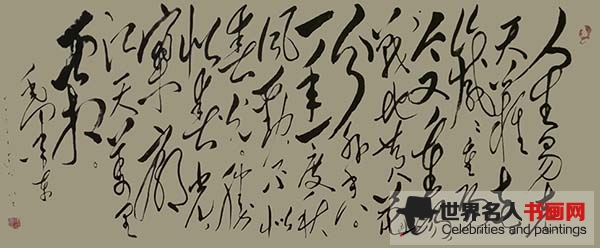 人生易老
天難老
歲歲重陽
今又重陽
戰地黄花
分外香
一年一度秋
風勁不似
春光勝
似春光
寥廓
江天萬里
霜
毛澤東
世界名人书画网
Celebrities and paintings